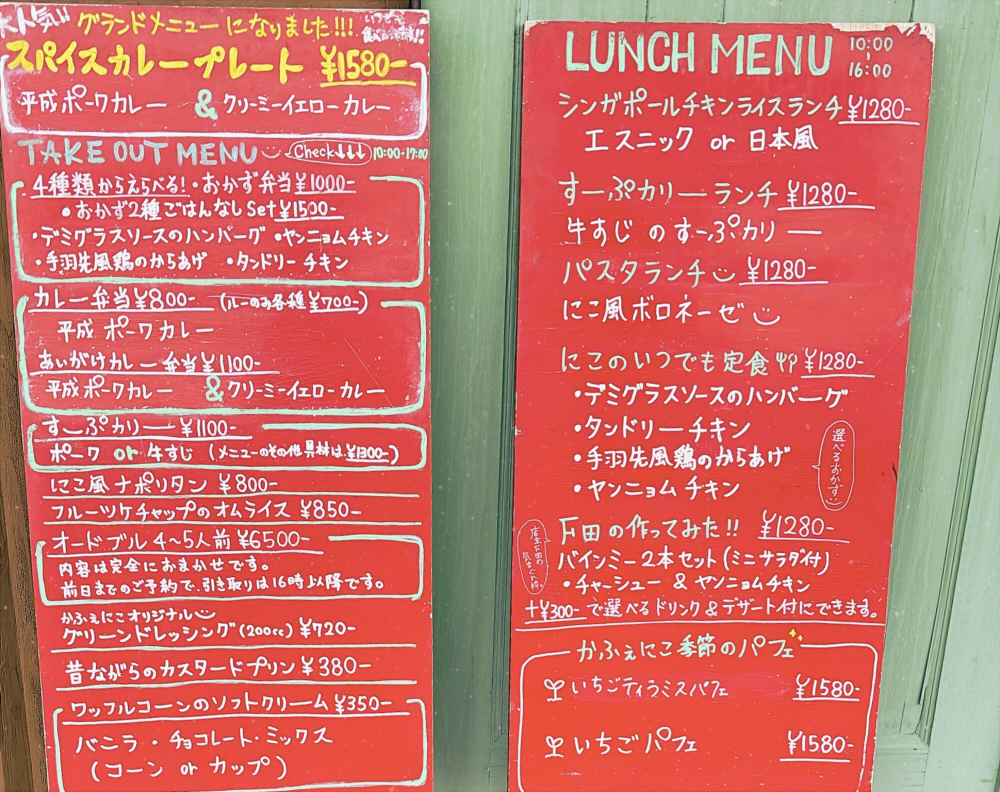 大人気!! グランドメニューになりました!!!
スパイスカレープレート ¥1580-
平成ポークカレー & クリーミーイエローカレー
TAKE OUT MENU Check↓↓↓ 10:00-17:00
4種類からえらべる!・おかず弁当¥1000-
・おかず2種ごはんなしSet¥1500-
・デミグラスソースのハンバーグ ・ヤンニョムチキン
・手羽先風鶏のからあげ ・タンドリーチキン
カレー弁当¥800- (ルーのみ各種¥700-)
平成ポークカレー
あいがけカレー弁当¥1100-
平成ポークカレー & クリーミーイエローカレー
すーぷカリー¥1100-
ポーク or 牛すじ (メニューのその他具材は¥1300-)
にこ風ナポリタン ¥800-
フルーツケチャップのオムライス ¥850-
オードブル4~5人前 ¥6500-
内容は完全におまかせです。
前日までのご予約で、引き取りは16時以降です。
かふぇにこオリジナル
グリーンドレッシング(200cc)¥720-
昔ながらのカスタードプリン¥380-
ワッフルコーンのソフトクリーム¥350-
バニラ・チョコレート・ミックス
(コーン or カップ)
LUNCH MENU 10:00-16:00
シンガポールチキンライスランチ¥1280-
エスニック or 日本風
すーぷカリーランチ ¥1280-
牛すじのすーぷカリー
パスタランチ ¥1280-
にこ風ボロネーゼ
にこのいつでも定食 ¥1280-
・デミグラスソースのハンバーグ
・タンドリーチキン
・手羽先風鶏のからあげ
・ヤンニョムチキン
選べるおかず
下田の作ってみた!! ¥1280-
バインミー2本セット(ミニサラダ付)
・チャーシュー & ヤンニョムチキン
+¥300-で選べるドリンク&デザート付にできます。
かふぇにこ季節のパフェ
いちごティラミスパフェ ¥1580-
いちごパフェ ¥1580-